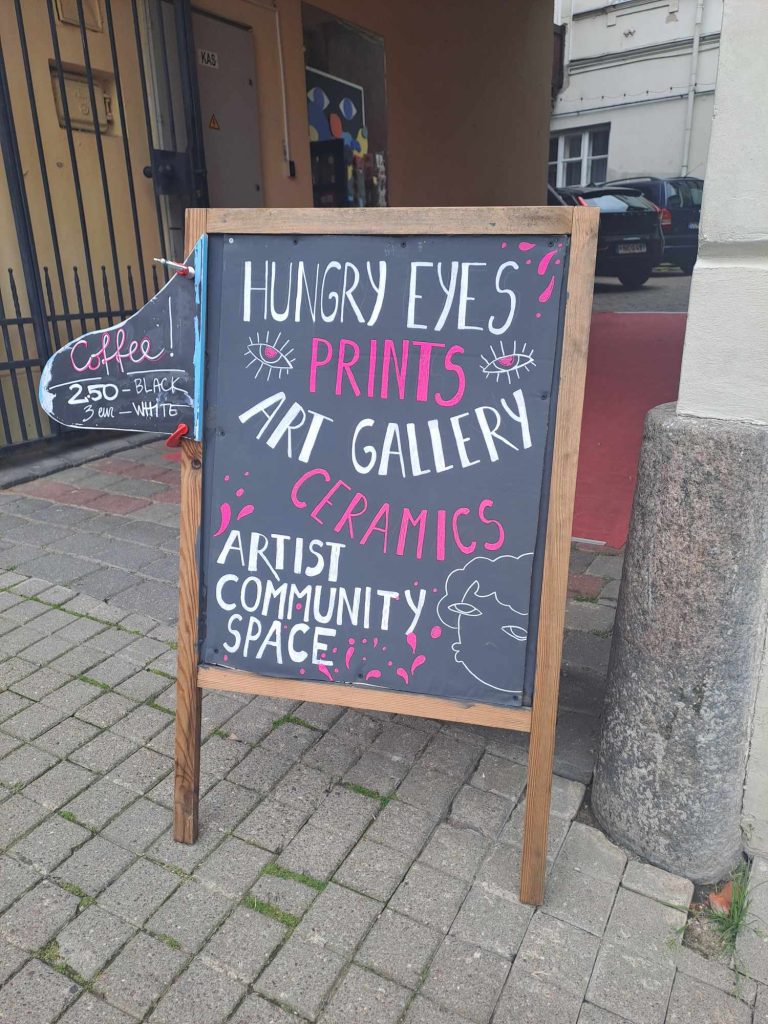 KAS
Coffee!
2.50 - BLACK
3 eur - WHITE
HUNGRY EYES
PRINTS
ART GALLERY
CERAMICS
ARTIST
COMMUNITY
SPACE